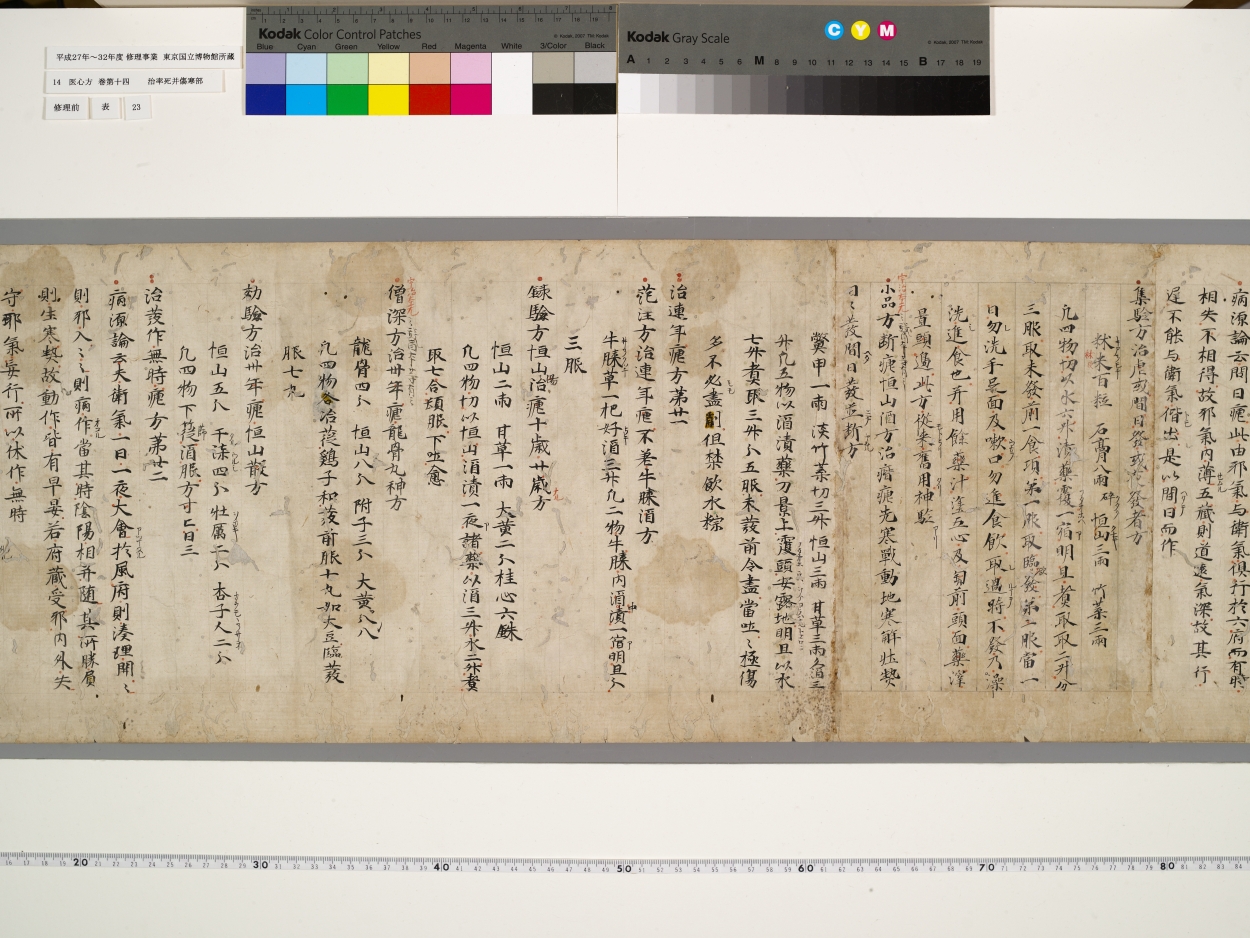 平成27年~32年度 修理事業 東京国立博物館所蔵
14 医心方 巻第十四 治卒死并傷寒部
修理前 表 23
Kodak Color Control Patches
© Kodak, 2007 TM: Kodak
Blue Cyan Green Yellow Red Magenta White 3/Color Black
Kodak Gray Scale
C Y M
© Kodak, 2007 TM: Kodak
A 1 2 3 4 5 6 M 8 9 10 11 12 13 14 15 B 17 18 19
病源論云間日瘧此由邪氣与衛氣俱行於六府而有時
相失不相得故邪氣内薄五蔵則道遠氣深故其行
遅不能与衛氣偕出是以間日而作
集驗方治瘧或間日發或夜發者方
秫米百粒 石膏八兩碎 恒山三兩 竹葉三兩
凡四物切以水六升漬藥覆一宿明旦煮取取二升分
三服取未發前一食頃第一服取臨發第二服當一
日勿洗手最面及嗽口勿進食飲取過時不發乃澡
洗進食也并用餘藥汁塗五心及匈前頭面藥滓
置頭邊此方從来舊用神驗
小品方断瘧恒山酒方治瘖瘧先寒戰動地寒解壮熱
日々發間日發並断方
鱉甲一兩 淡竹葉切三升 恒山三兩 甘草三兩
升凡五物以酒漬藥刀景上覆頭安露地明旦以水
七升煮取三升分五服未發前令盡當吐々極傷
多不必盡剤但禁飲水粽
治連年瘧方第廿一
范汪方治連年瘧不差牛膝酒方
牛膝草一把好酒三升凡二物牛膝内酒漬一宿明旦分
三服
録驗方恒山治瘧十歳廿歳方
恒山二兩 甘草一兩 大黄二分 桂心六銖
凡四物切以恒山酒漬一夜諸藥以酒三升水二升煮
取七合頓服下吐愈
僧深方治卅年瘧龍骨丸神方
龍骨四分 恒山八分 附子三分 大黄八分
凡四物合治莅鷄子和發前服十丸如大豆臨發
服七丸
効驗方治卅年瘧恒山散方
恒山五分 干漆四分 牡厲二分 杏子人二分
凡四物下莅酒服方寸匕日三
治發作無時瘧方第廿二
病源論云夫衛氣一日一夜大會於風府則湊理開々
則邪入々則病作當其時陰陽相并随其所勝負
則生寒熱故動作皆有早晏若府蔵受邪内外失
守邪氣妄行所以休作無時
20 30 40 50 60 70 80